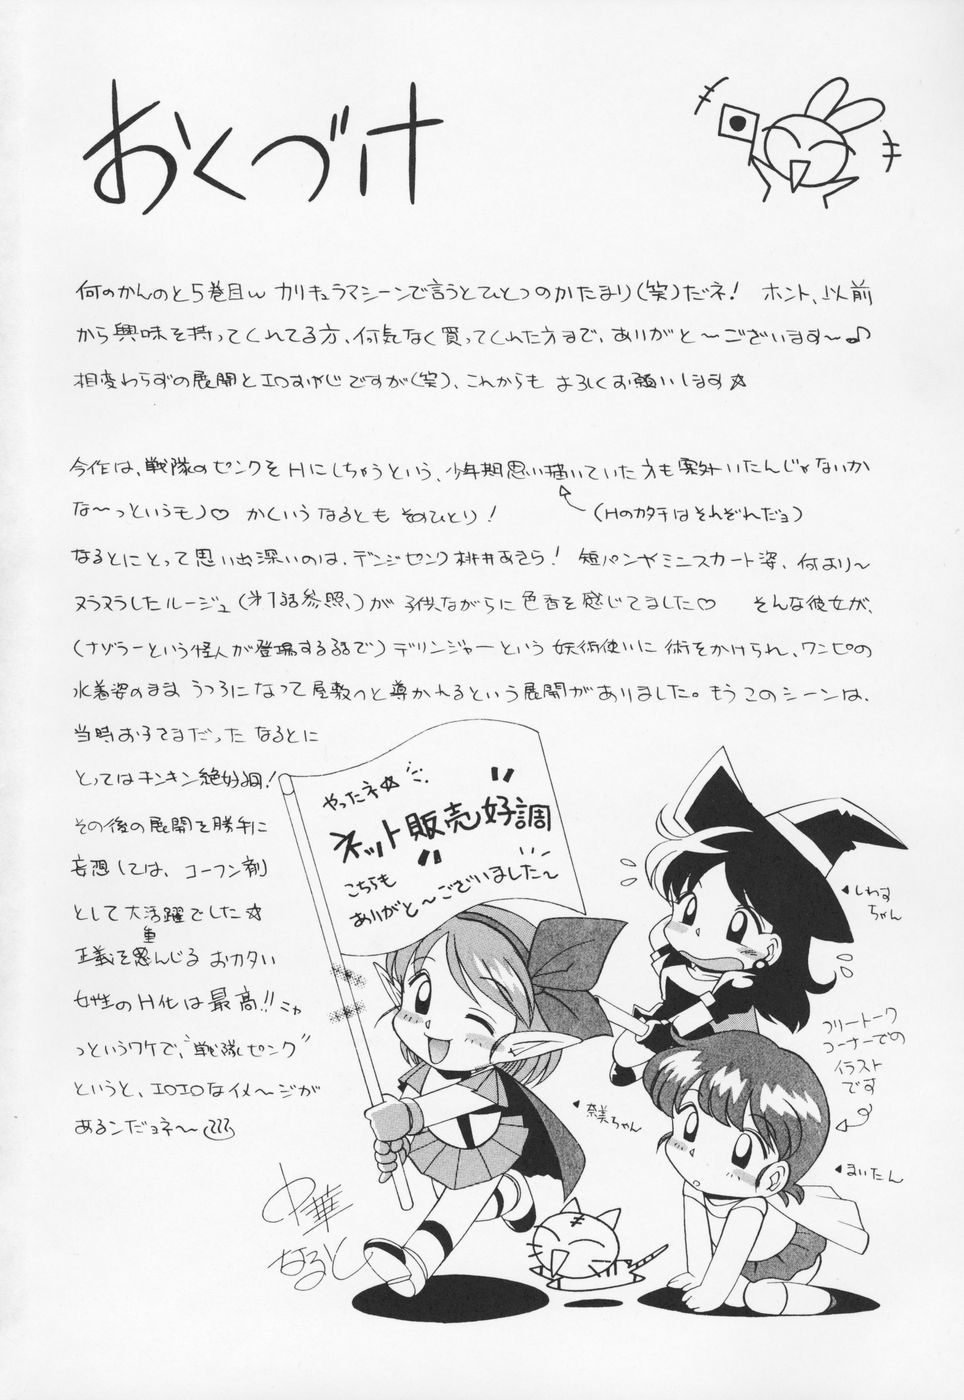 おくづけ
何のかんのと5巻目w カリキュラマシーンで言うとひとつのかたまり(笑)だネ! ホント、以前
から興味を持ってくれてる方、何気なく買ってくれた方まで、ありがと〜ございます〜♪
相変わらずの展開とエロオヤジですが(笑)、これからも よろしくお願いします☆
今作は、戦隊のピンクをHにしちゃうという、少年期思い描いていた方も案外いたんじゃないか
な〜っというモノ♡ かくいうなるとも そのひとり!
(Hのカタチはそれぞれだョ)
なるとにとって思い出深いのは、デンジピンク桃井あきら! 短パンやミニスカート姿、何より〜
ヌラヌラしたルージュ(第1話参照、)が子供ながらに色香を感じてました♡ そんな彼女が、
(ナゾラーという怪人が登場する話で)デリンジャーという妖術使いに術をかけられ、ワンピの
水着姿のまま うつろになって屋敷へと導かれるという展開がありました。もうこのシーンは、
当時お子さまだった なるとに
とってはギンギン絶好調!
その後の展開を勝手に
妄想しては、コーフン剤
として大活躍でした☆
正義を重んじる おカタい
女性のH化は最高!!ニャ
っというワケで、"戦隊ピンク"
というと、エロエロなイメ〜ジが
あるンだョネ〜
中華
なると
やったネ☆
"ネット販売好調"
こちらも
ありがと〜ございました〜
しわす
ちゃん
フリートーク
コーナーでの
イラスト
です
奈美ちゃん
まいたん